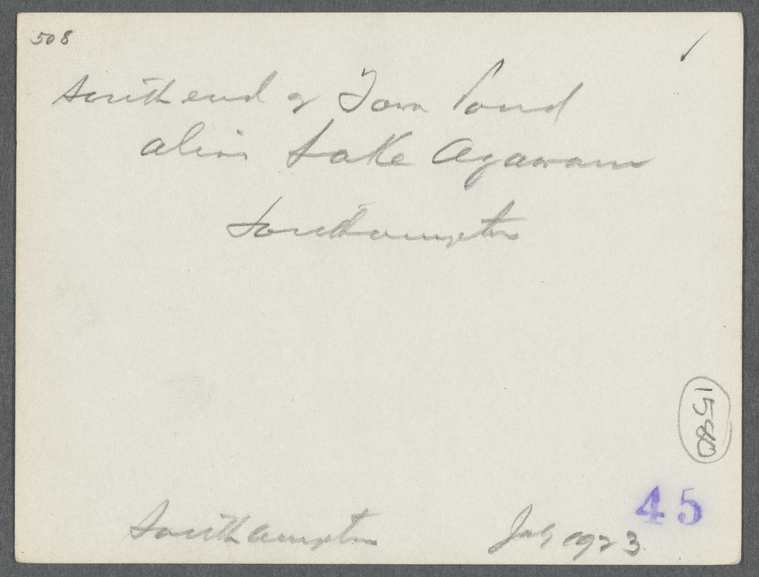 508
South end of Town Pond
alias Lake Agawam
Southampton
1580
45
Southampton July 1923